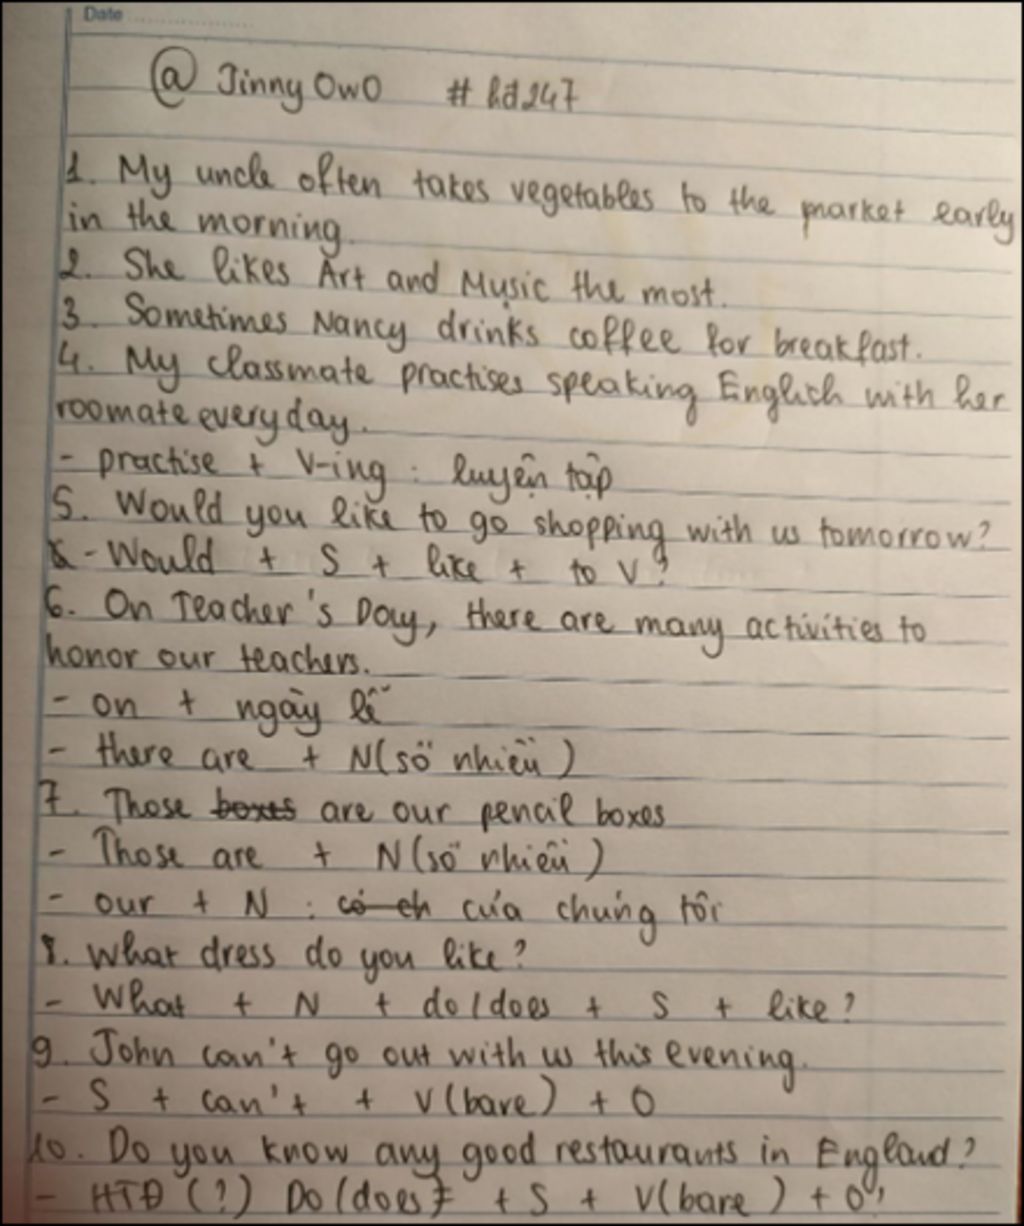 Date
@ Jinny OwO # hd247
1. My uncle often takes vegetables to the market early
in the morning.
2. She likes Art and Music the most.
3. Sometimes Nancy drinks coffee for breakfast.
4. My classmate practises speaking English with her
roomate everyday.
- practise + V-ing : luyện tập
5. Would you like to go shopping with us tomorrow?
- Would + S + like + to V?
6. On Teacher's Day, there are many activities to
honor our teachers.
- on + ngày lễ
- there are + N(số nhiều)
7. Those boxes are our pencil boxes
- Those are + N(số nhiều)
- our + N : có ch của chúng tôi
8. What dress do you like?
- What + N + do/does + S + like?
9. John can't go out with us this evening.
- S + can't + V(bare) + O
10. Do you know any good restaurants in England?
- HTĐ (?) Do/does + S + V(bare) + O?